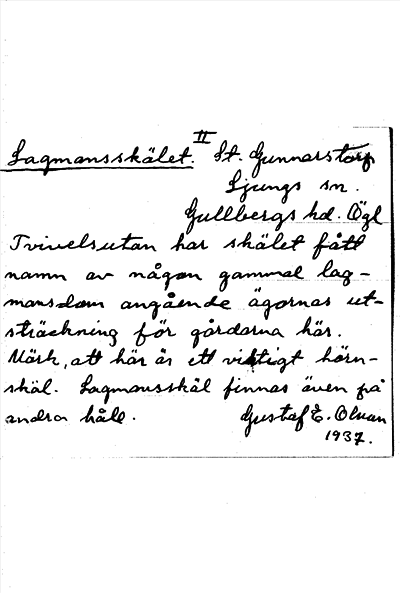 II
Lagmansskälet. St. Gunnarstorp
Ljungs sn.
Gullbergs hd. Ögl
Tvivelsutan har skälet fått
namn av någon gammal lag-
mansdom angående ägornas ut-
sträckning för gårdarna här.
Märk, att här är ett viktigt hörn-
skäl. Lagmansskäl finnas även på
andra håll. Gustaf E. Olsson
1937.